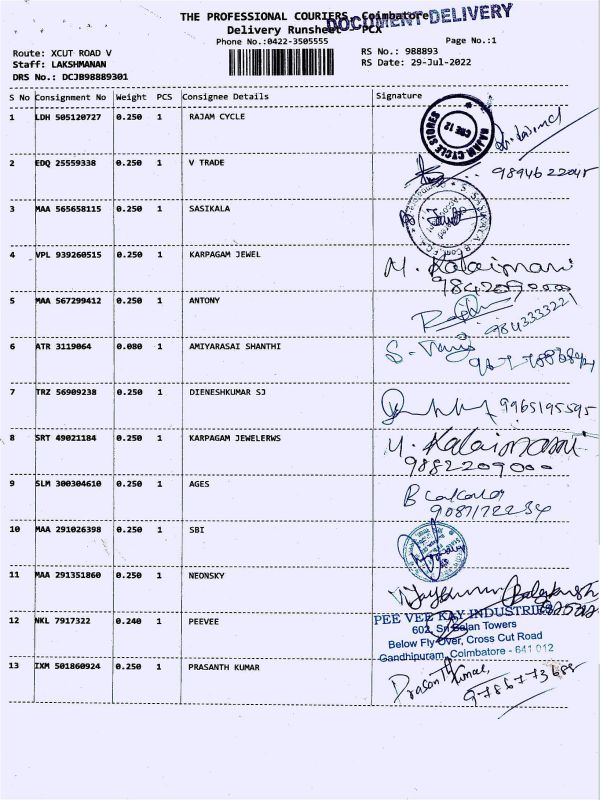 THE PROFESSIONAL COURIERS, Coimbatore
DOCUMENT DELIVERY
Delivery Runsheet - PCX
Phone No.:0422-3505555
Page No.:1
Route: XCUT ROAD V
RS No.: 988893
Staff: LAKSHMANAN
RS Date: 29-Jul-2022
DRS No.: DCJB98889301
S No Consignment No Weight PCS Consignee Details Signature
1 LDH 505120727 0.250 1 RAJAM CYCLE
RAJAM CYCLE STORES
CBE 12
2 EDQ 25559338 0.250 1 V TRADE
9894622045
3 MAA 565658115 0.250 1 SASIKALA
S. SASIKALA
4 VPL 939260515 0.250 1 KARPAGAM JEWEL
M. Kalaimani
9842090000
5 MAA 567299412 0.250 1 ANTONY
9843333221
6 ATR 3119064 0.080 1 AMIYARASAI SHANTHI
7 TRZ 56909238 0.250 1 DIENESHKUMAR SJ
9965195595
8 SRT 49021184 0.250 1 KARPAGAM JEWELERWS
M. Kalaimani
9882209000
9 SLM 300304610 0.250 1 AGES
9087172234
10 MAA 291026398 0.250 1 SBI
11 MAA 291351860 0.250 1 NEONSKY
12 NKL 7917322 0.240 1 PEEVEE
PEE VEE KAY INDUSTRIES
602, Sri Balan Towers
Below Fly Over, Cross Cut Road
Gandhipuram, Coimbatore - 641 012
13 IXM 501860924 0.250 1 PRASANTH KUMAR
Prasanth Kumar,
9786773688